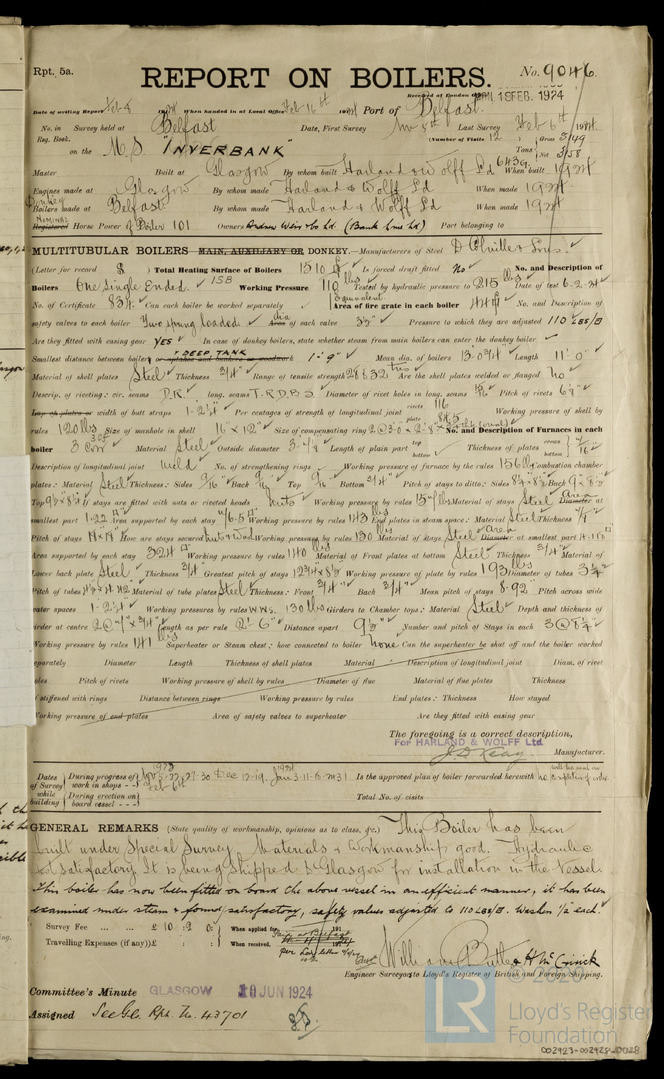 Rpt. 5a.
REPORT ON BOILERS.
No. 9046
Received at London Office 18 FEB. 1924
Date of writing Report Feb 8 1924 When handed in at Local Office Feb 16th 1924 Port of Belfast
No. in Survey held at Belfast Date, First Survey Nov 5th Last Survey Feb 6th 1924
Reg. Book. (Number of Visits 12)
on the M.S "INVERBANK" Tons Gross 3149 Net 3158
Master Built at Glasgow By whom built Harland & Wolff Ld 643G When built 1924
Engines made at Glasgow By whom made Harland & Wolff Ld When made 1924
Donkey Boilers made at Belfast By whom made Harland & Wolff Ld When made 1924
NOMINAL Registered Horse Power of Boiler 101 Owners Andrew Weir & Co Ld. (Bank Line Ld) Port belonging to
MULTITUBULAR BOILERS MAIN, AUXILIARY OR DONKEY.—Manufacturers of Steel D. Colville & Sons.
(Letter for record S) Total Heating Surface of Boilers 1310 Is forced draft fitted No No. and Description of
Boilers One Single Ended. 15B Working Pressure 110 lbs Tested by hydraulic pressure to 215 lbs Date of test 6-2-24
No. of Certificate 834 Can each boiler be worked separately Equivalent Area of fire grate in each boiler 44 No. and Description of
safety valves to each boiler Two spring loaded dia Area of each valve 3½" Pressure to which they are adjusted 110 LBS/□"
Are they fitted with easing gear YES In case of donkey boilers, state whether steam from main boilers can enter the donkey boiler
Smallest distance between boilers or uptakes and bunkers or woodwork DEEP TANK 1'-9" Mean dia. of boilers 13-0¾ Length 11'-0"
Material of shell plates Steel Thickness ¾" Range of tensile strength 28 & 32 tons Are the shell plates welded or flanged No
Descrip. of riveting: cir. seams D.R. long. seams T.R.D.B.S. Diameter of rivet holes in long. seams Pitch of rivets
Lap of plates or width of butt straps 1-2¼" Per centages of strength of longitudinal joint rivets 116 plate 84.5 Working pressure of shell by
rules 120 lbs Size of manhole in shell 16" x 12" Size of compensating ring No. and Description of Furnaces in each
boiler 3 Material Steel Outside diameter Length of plain part top bottom Thickness of plates crown bottom 7/16"
Description of longitudinal joint weld No. of strengthening rings Working pressure of furnace by the rules 156 Combustion chamber
plates: Material Steel Thickness: Sides Back Top Bottom ¾" Pitch of stays to ditto: Sides Back
Top If stays are fitted with nuts or riveted heads nuts Working pressure by rules Material of stays Steel Area Diameter at
smallest part 1.22 Area supported by each stay Working pressure by rules 143 End plates in steam space: Material Steel Thickness
Pitch of stays How are stays secured Working pressure by rules 130 lbs Material of stays Steel Area Diameter at smallest part
Area supported by each stay 324 Working pressure by rules 140 lbs Material of Front plates at bottom Steel Thickness ¾" Material of
Lower back plate Steel Thickness ¾" Greatest pitch of stays Working pressure of plate by rules 193 lbs Diameter of tubes 3¼"
Pitch of tubes Material of tube plates Steel Thickness: Front ¾" Back ¾" Mean pitch of stays 8.92" Pitch across wide
water spaces 1-2¼" Working pressures by rules 130 lbs Girders to Chamber tops: Material Steel Depth and thickness of
girder at centre Length as per rule 2'-6" Distance apart 9½" Number and pitch of Stays in each
Working pressure by rules 141 lbs Superheater or Steam chest; how connected to boiler None Can the superheater be shut off and the boiler worked
separately Diameter Length Thickness of shell plates Material Description of longitudinal joint Diam. of rivet
holes Pitch of rivets Working pressure of shell by rules Diameter of flue Material of flue plates Thickness
If stiffened with rings Distance between rings Working pressure by rules End plates: Thickness How stayed
Working pressure of end plates Area of safety valves to superheater Are they fitted with easing gear
The foregoing is a correct description,
For HARLAND & WOLFF Ltd. Manufacturer.
Dates of Survey while building During progress of work in shops - - 1923 Nov 5-22-27-30 Dec 12-19. 1924 Jan 3-11-16 Feb 6th Is the approved plan of boiler forwarded herewith
During erection on board vessel - - - Total No. of visits
GENERAL REMARKS (State quality of workmanship, opinions as to class, &c.) This Boiler has been
built under Special Survey. Materials & Workmanship good. Hydraulic
test satisfactory. It is being shipped to Glasgow for installation in the Vessel.
This boiler has now been fitted on board the above vessel in an efficient manner, it has been
examined under steam & found satisfactory, safety valves adjusted to 110 LBS/□". Washers ½ each.
Survey Fee ... ... £ 10 : 2 : 0 When applied for, 191
Travelling Expenses (if any) £ : : When received, 191
William Butler & H. McCrirrick
Engineer Surveyors to Lloyd's Register of British and Foreign Shipping.
Committee's Minute GLASGOW 10 JUN 1924
Assigned See Gls. Rpt. No. 43701
© 2020
LR
Lloyd's Register
Foundation
002923-002928-0028